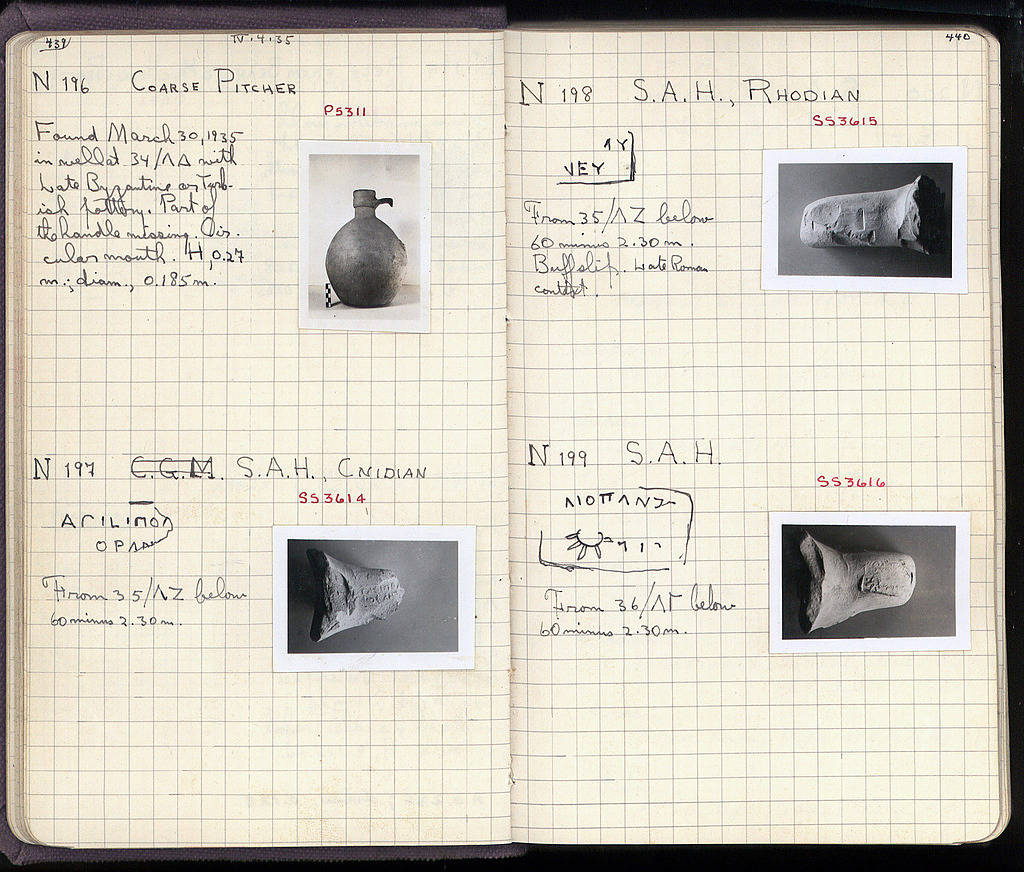 439
IV.4.35
N 196 COARSE PITCHER
P5311
Found March 30, 1935
in well at 34/ΛΔ with
Late Byzantine or Turk-
ish pottery. Part of
the handle missing. Cir-
cular mouth. H, 0.27
m.; diam., 0.185 m.
N 197 C.G.M. S.A.H., CNIDIAN
SS3614
From 35/ΛΖ below
60 minus 2.30 m.
440
N 198 S.A.H., RHODIAN
SS3615
ΛΥ
VEY
From 35/ΛΖ below
60 minus 2.30 m.
Buff slip. Late Roman
context.
N 199 S.A.H.
SS3616
From 36/ΛΓ below
60 minus 2.30 m.